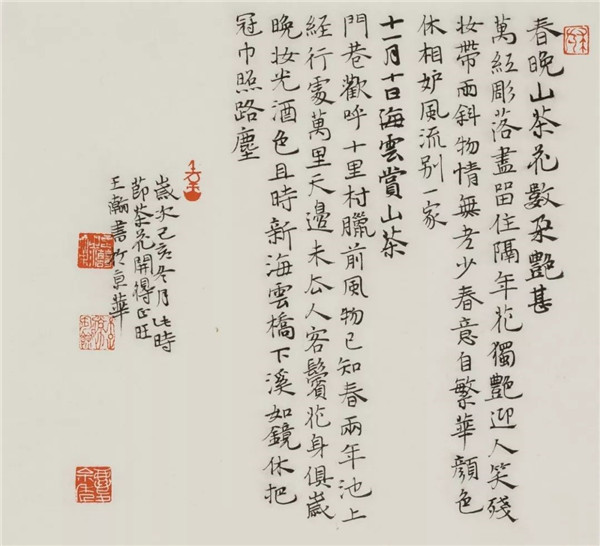 春晚山茶花數朶艷甚
萬紅彫落盡留住隔年花獨艷迎人笑殘
妝帶雨斜物情無老少春意自繁華顏色
休相妒風流別一家
十一月十日海雲賞山茶
門巷歡呼十里村臘前風物已知春兩年池上
經行處萬里天邊未去人客鬢花身俱歲
晚妝光酒色且時新海雲橋下溪如鏡休把
冠巾照路塵
歲次己亥冬月此時
節茶花開得正旺
王瀚書於京華